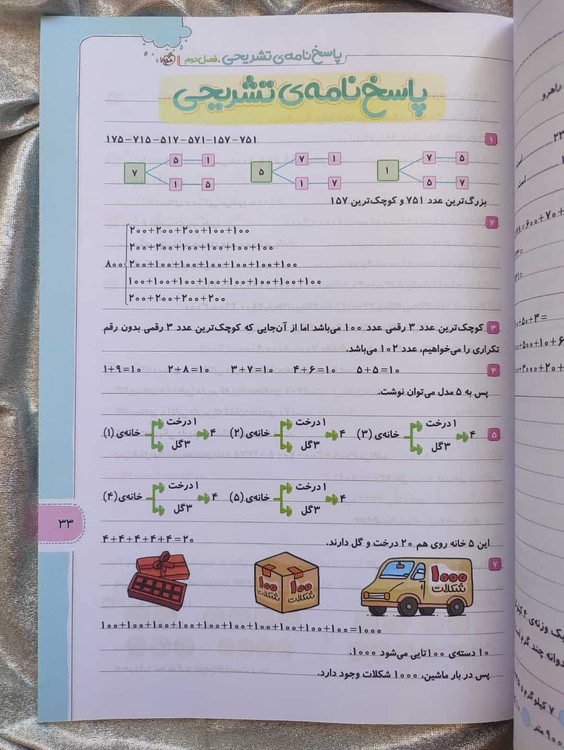 پاسخ‌نامه‌ی تشریحی . فصل دوم
پاسخ‌نامه‌ی تشریحی
۱
۱۷۵-۷۱۵-۵۱۷-۵۷۱-۱۵۷-۷۵۱
۷ ۵ ۱ ۱ ۵
۵ ۷ ۱ ۱ ۷
۱ ۷ ۵ ۵ ۷
بزرگ‌ترین عدد ۷۵۱ و کوچک‌ترین ۱۵۷
۲
۸۰۰
۲۰۰+۲۰۰+۲۰۰+۱۰۰+۱۰۰
۲۰۰+۲۰۰+۱۰۰+۱۰۰+۱۰۰+۱۰۰
۲۰۰+۱۰۰+۱۰۰+۱۰۰+۱۰۰+۱۰۰+۱۰۰
۱۰۰+۱۰۰+۱۰۰+۱۰۰+۱۰۰+۱۰۰+۱۰۰+۱۰۰
۲۰۰+۲۰۰+۲۰۰+۲۰۰
۳ کوچک‌ترین عدد ۳ رقمی عدد ۱۰۰ می‌باشد اما از آن‌جایی که کوچک‌ترین عدد ۳ رقمی بدون رقم
تکراری را می‌خواهیم، عدد ۱۰۲ می‌باشد.
۴
۱+۹=۱۰ ۲+۸=۱۰ ۳+۷=۱۰ ۴+۶=۱۰ ۵+۵=۱۰
پس به ۵ مدل می‌توان نوشت.
۵
خانه‌ی (۱) ۱ درخت ۳ گل ۴
خانه‌ی (۲) ۱ درخت ۳ گل ۴
خانه‌ی (۳) ۱ درخت ۳ گل ۴
خانه‌ی (۴) ۱ درخت ۳ گل ۴
خانه‌ی (۵) ۱ درخت ۳ گل ۴
این ۵ خانه روی هم ۲۰ درخت و گل دارند.
۴+۴+۴+۴+۴=۲۰
۷
۱۰۰ شکلات
۱۰۰۰ شکلات
۱۰۰+۱۰۰+۱۰۰+۱۰۰+۱۰۰+۱۰۰+۱۰۰+۱۰۰+۱۰۰+۱۰۰=۱۰۰۰
۱۰ دسته‌ی ۱۰۰تایی می‌شود ۱۰۰۰.
پس در بار ماشین، ۱۰۰۰ شکلات وجود دارد.
۳۳